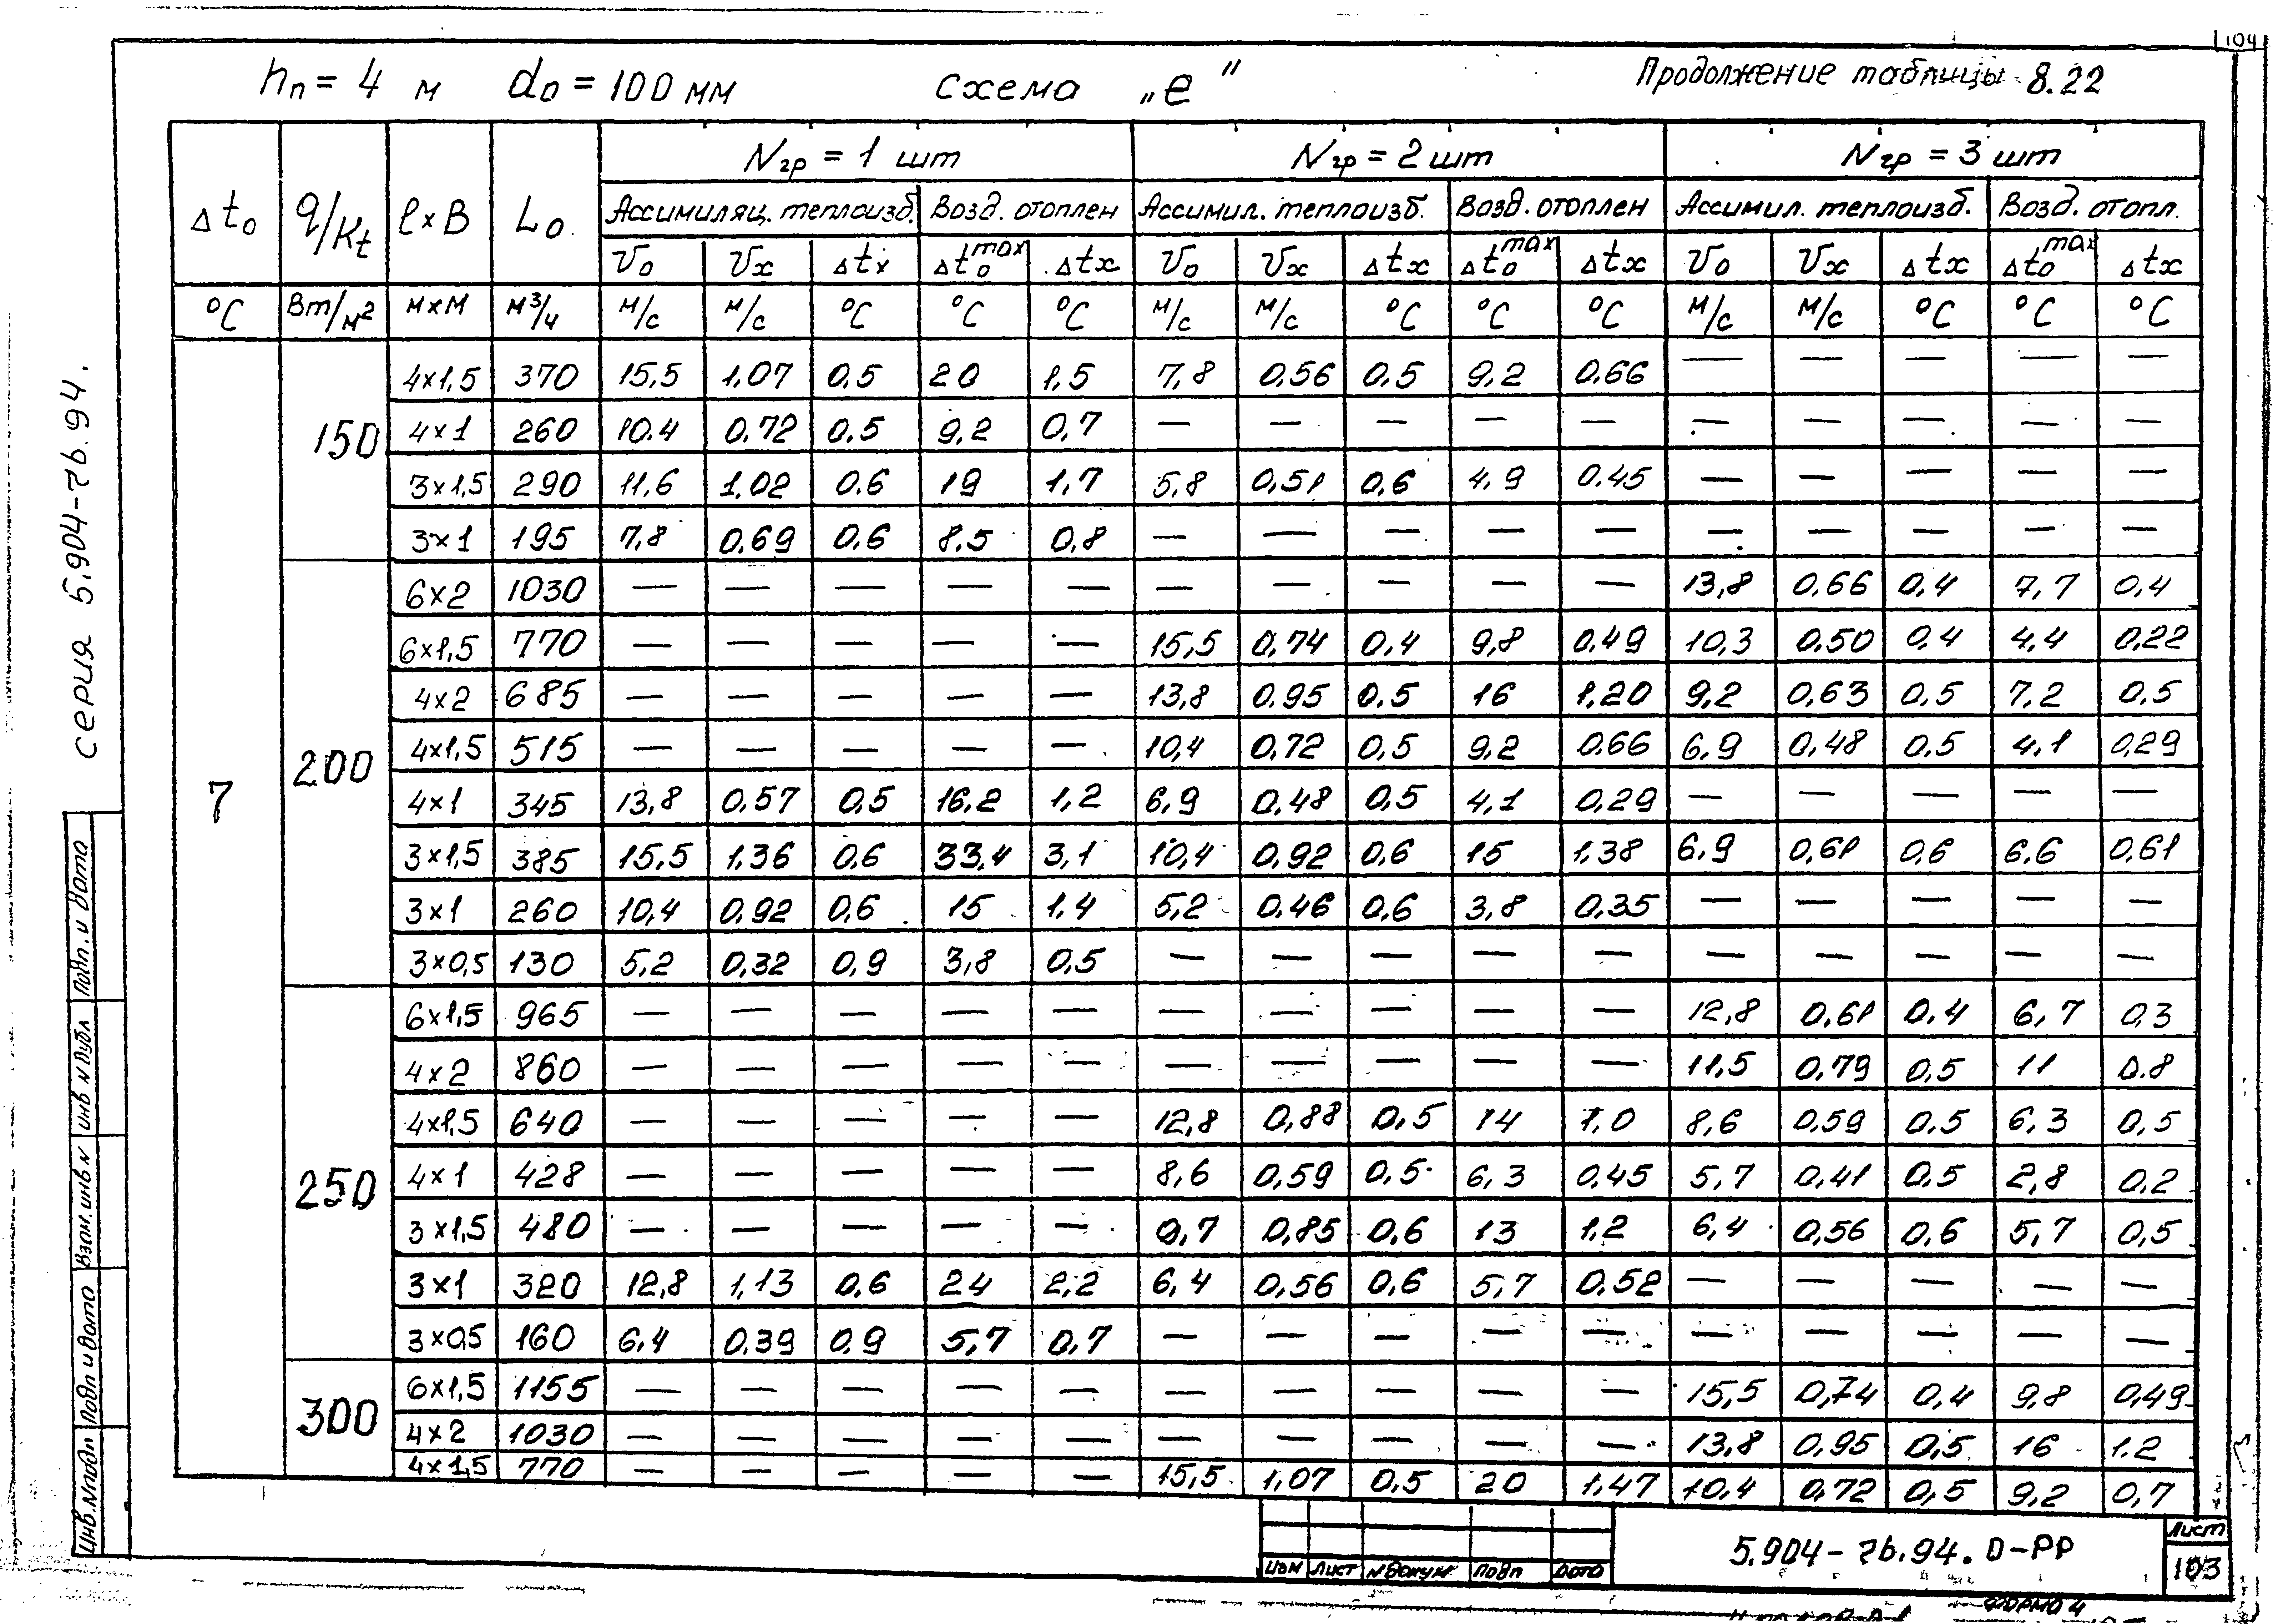 104
hп = 4 м   do = 100 мм   схема „е“   Продолжение таблицы 8.22
Δto   q/Kt   l×B   Lo   Nгр = 1 шт   Nгр = 2 шт   Nгр = 3 шт
Ассимиляц. теплоизб.   Возд. отоплен   Ассимил. теплоизб.   Возд. отоплен   Ассимил. теплоизб.   Возд. отопл.
Vo   Vx   Δtx   Δto max   Δtx   Vo   Vx   Δtx   Δto max   Δtx   Vo   Vx   Δtx   Δto max   Δtx
°C   Вт/м²   м×м   м³/ч   м/с   м/с   °C   °C   °C   м/с   м/с   °C   °C   °C   м/с   м/с   °C   °C   °C
7
150   4×1,5   370   15,5   1,07   0,5   20   1,5   7,8   0,56   0,5   9,2   0,66   —   —   —   —   —
4×1   260   10.4   0,72   0,5   9,2   0,7   —   —   —   —   —   —   —   —   —   —
3×1,5   290   11,6   1,02   0,6   19   1,7   5,8   0,51   0,6   4,9   0.45   —   —   —   —   —
3×1   195   7,8   0,69   0,6   8,5   0,8   —   —   —   —   —   —   —   —   —   —
200   6×2   1030   —   —   —   —   —   —   —   —   —   —   13,8   0,66   0,4   7,7   0,4
6×1,5   770   —   —   —   —   —   15,5   0,74   0,4   9,8   0,49   10,3   0,50   0,4   4,4   0,22
4×2   685   —   —   —   —   —   13,8   0,95   0,5   16   1,20   9,2   0,63   0,5   7,2   0,5
4×1,5   515   —   —   —   —   —   10,4   0,72   0,5   9,2   0,66   6,9   0,48   0,5   4,1   0,29
4×1   345   13,8   0,57   0,5   16,2   1,2   6,9   0,48   0,5   4,1   0,29   —   —   —   —   —
3×1,5   385   15,5   1,36   0,6   33,4   3,1   10,4   0,92   0,6   15   1,38   6,9   0,61   0,6   6,6   0,61
3×1   260   10,4   0,92   0,6   15   1,4   5,2   0,46   0,6   3,8   0,35   —   —   —   —   —
3×0,5   130   5,2   0,32   0,9   3,8   0,5   —   —   —   —   —   —   —   —   —   —
250   6×1,5   965   —   —   —   —   —   —   —   —   —   —   12,8   0,61   0,4   6,7   0,3
4×2   860   —   —   —   —   —   —   —   —   —   —   11,5   0,79   0,5   11   0.8
4×1,5   640   —   —   —   —   —   12,8   0,88   0,5   14   1,0   8,6   0,59   0,5   6,3   0,5
4×1   428   —   —   —   —   —   8,6   0,59   0,5   6,3   0,45   5,7   0,41   0,5   2,8   0,2
3×1,5   480   —   —   —   —   —   9,7   0,85   0,6   13   1,2   6,4   0,56   0,6   5,7   0,5
3×1   320   12,8   1,13   0,6   24   2,2   6,4   0,56   0,6   5,7   0,52   —   —   —   —   —
3×0,5   160   6,4   0,39   0,9   5,7   0,7   —   —   —   —   —   —   —   —   —   —
300   6×1,5   1155   —   —   —   —   —   —   —   —   —   —   15,5   0,74   0,4   9,8   0,49
4×2   1030   —   —   —   —   —   —   —   —   —   —   13,8   0,95   0,5   16   1.2
4×1,5   770   —   —   —   —   —   15,5   1,07   0,5   20   1,47   10,4   0,72   0,5   9,2   0,7
серия 5.904-7в.94.
Подп. и дата
Инв N дубл
Взам. инв N
Подп и дата
Инв. N подп
Изм   Лист   N докум.   Подп   Дата
5.904-7в.94.0-РР
Лист
103
Формат 4